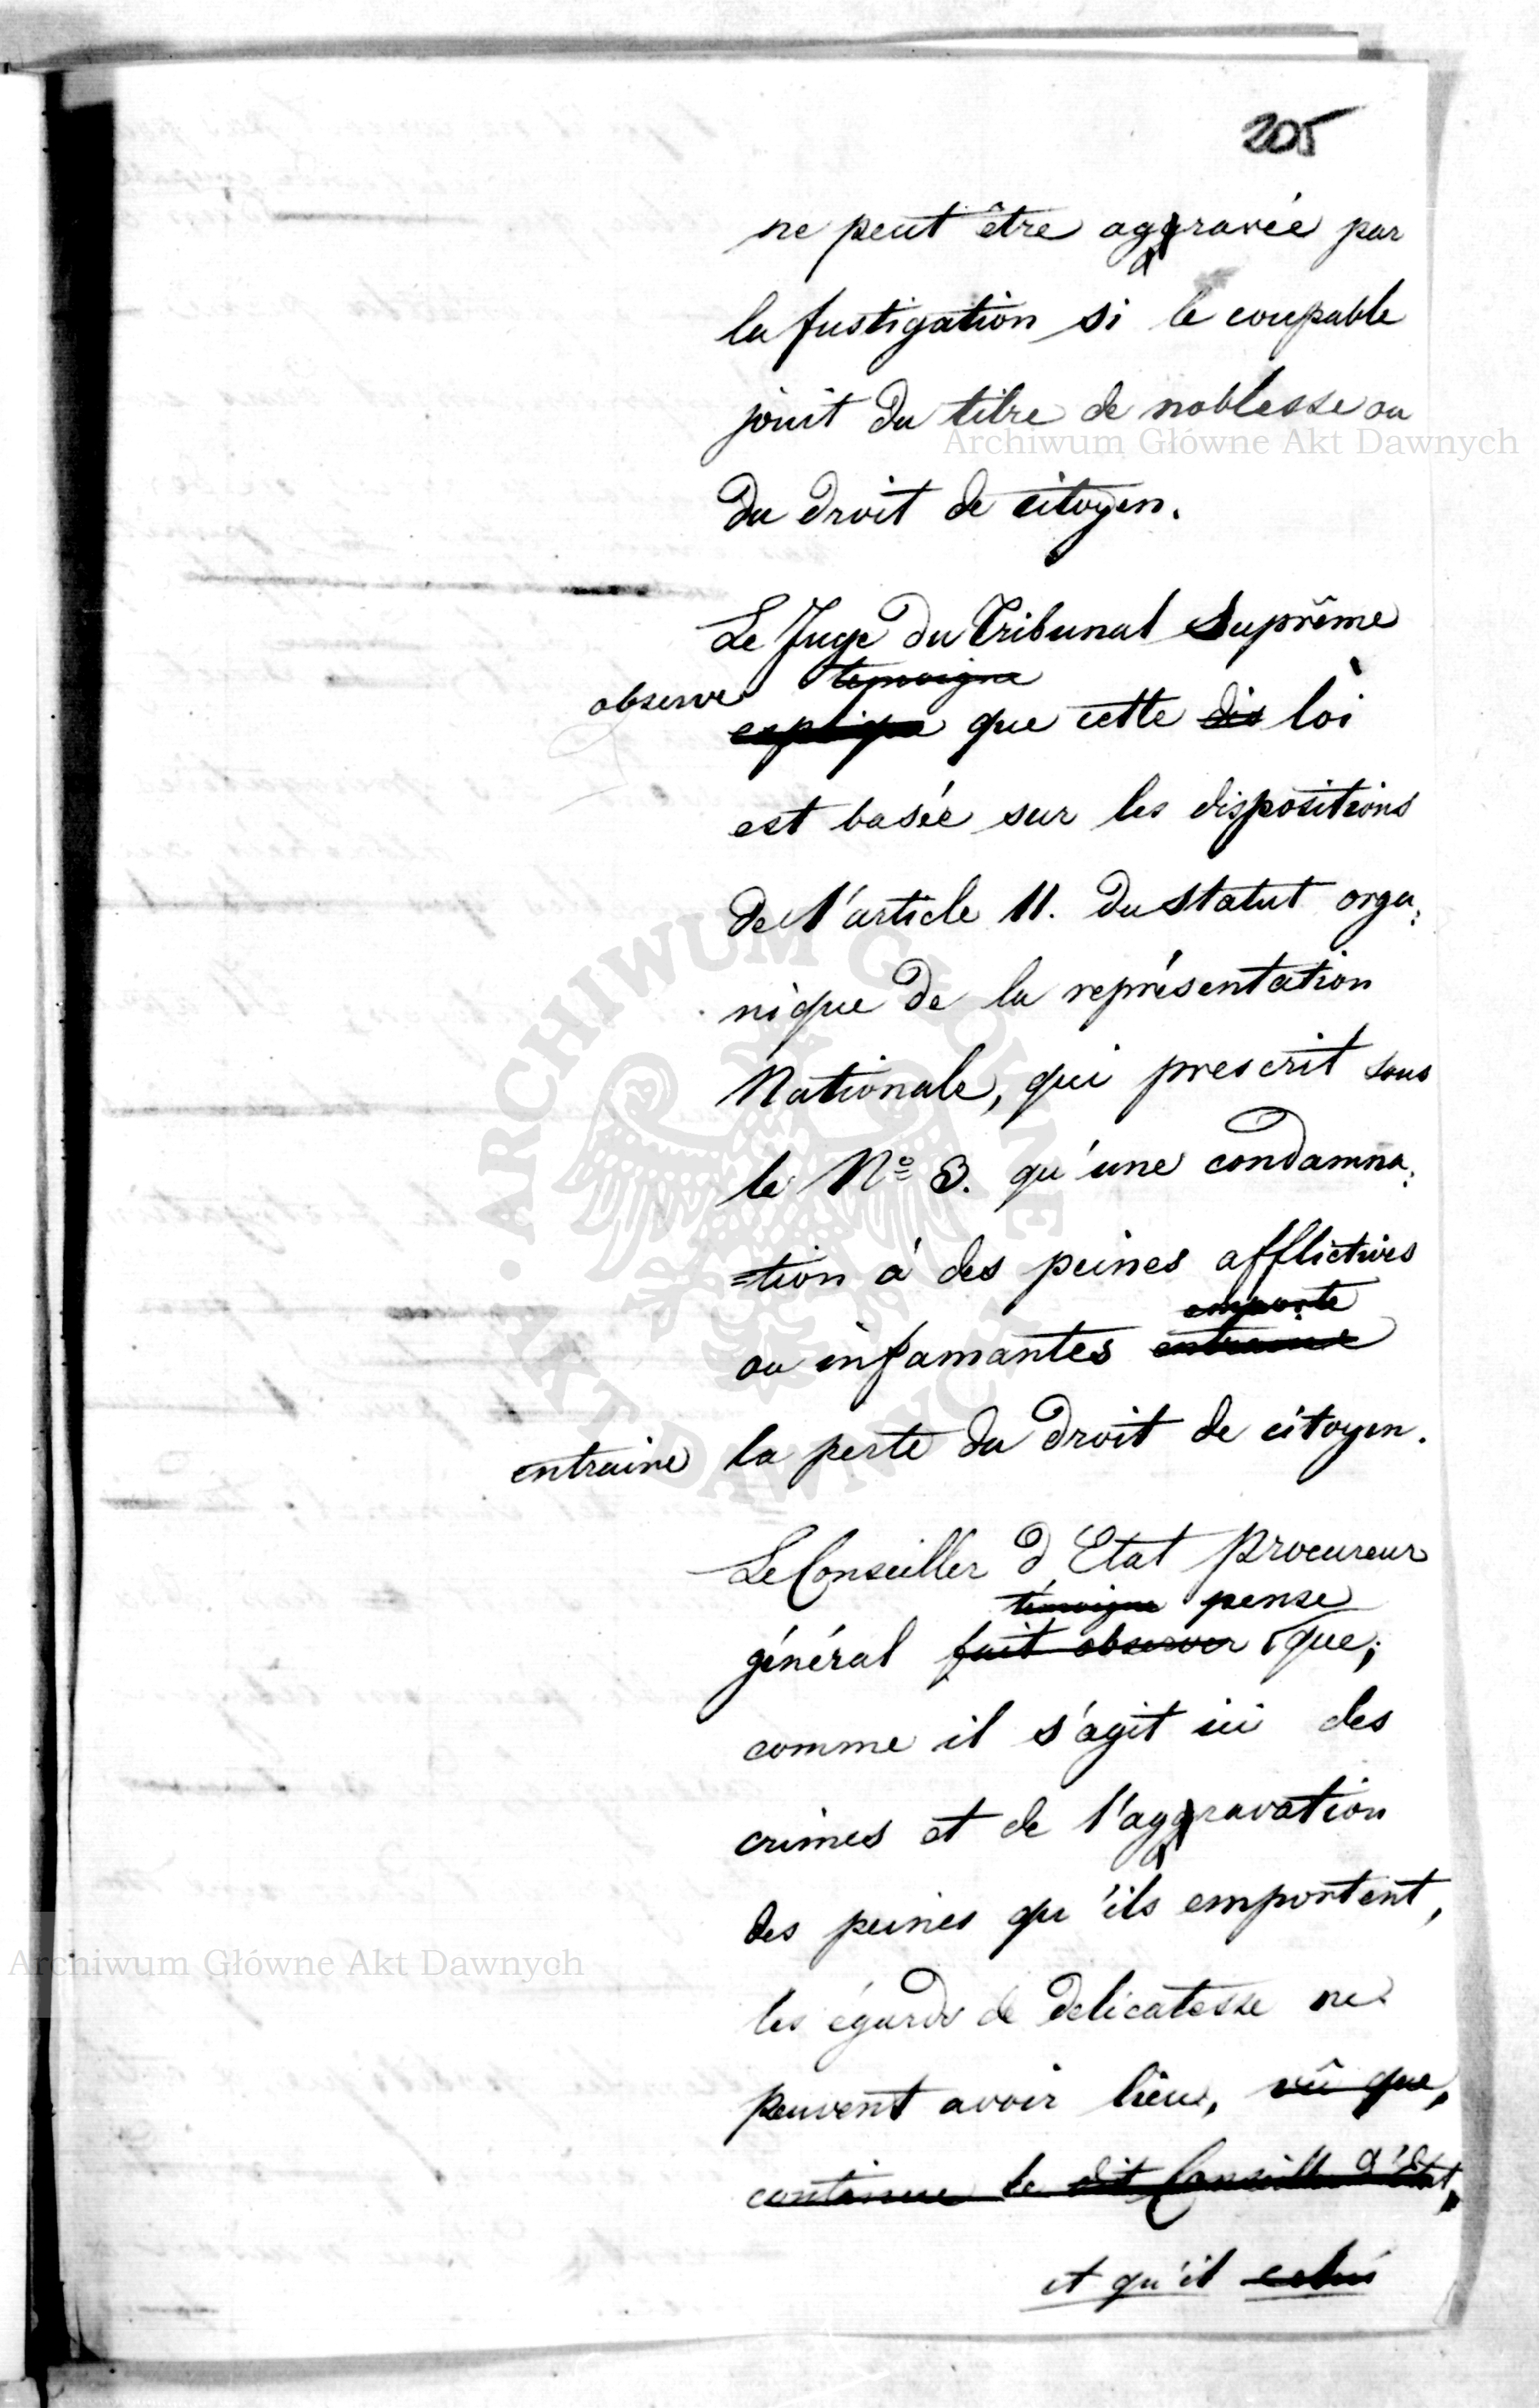 205
ne peut être aggravée par
la fustigation si le coupable
jouit du titre de noblesse ou
du droit de citoyen.
Le Juge du Tribunal Suprême
témoigne
observe explique que cette dis loi
est basée sur les dispositions
de l'article 11. du statut orga:
nique de la représentation
Nationale, qui prescrit sous
le Nº 3. qu'une condamna:
=tion à des peines afflictives
emporte
ou infamantes entraine
entraine la perte du droit de citoyen.
Le Conseiller d'Etat procureur
témoigne pense
général fait observer que,
comme il s'agit ici des
crimes et de l'aggravation
des peines qu'ils emportent,
les égards de delicatesse ne
peuvent avoir lieu, vû que,
continue le dit Conseiller d'Etat,
et qu'il celui
Archiwum Główne Akt Dawnych
ARCHIWUM GŁÓWNE AKT DAWNYCH
Archiwum Główne Akt Dawnych